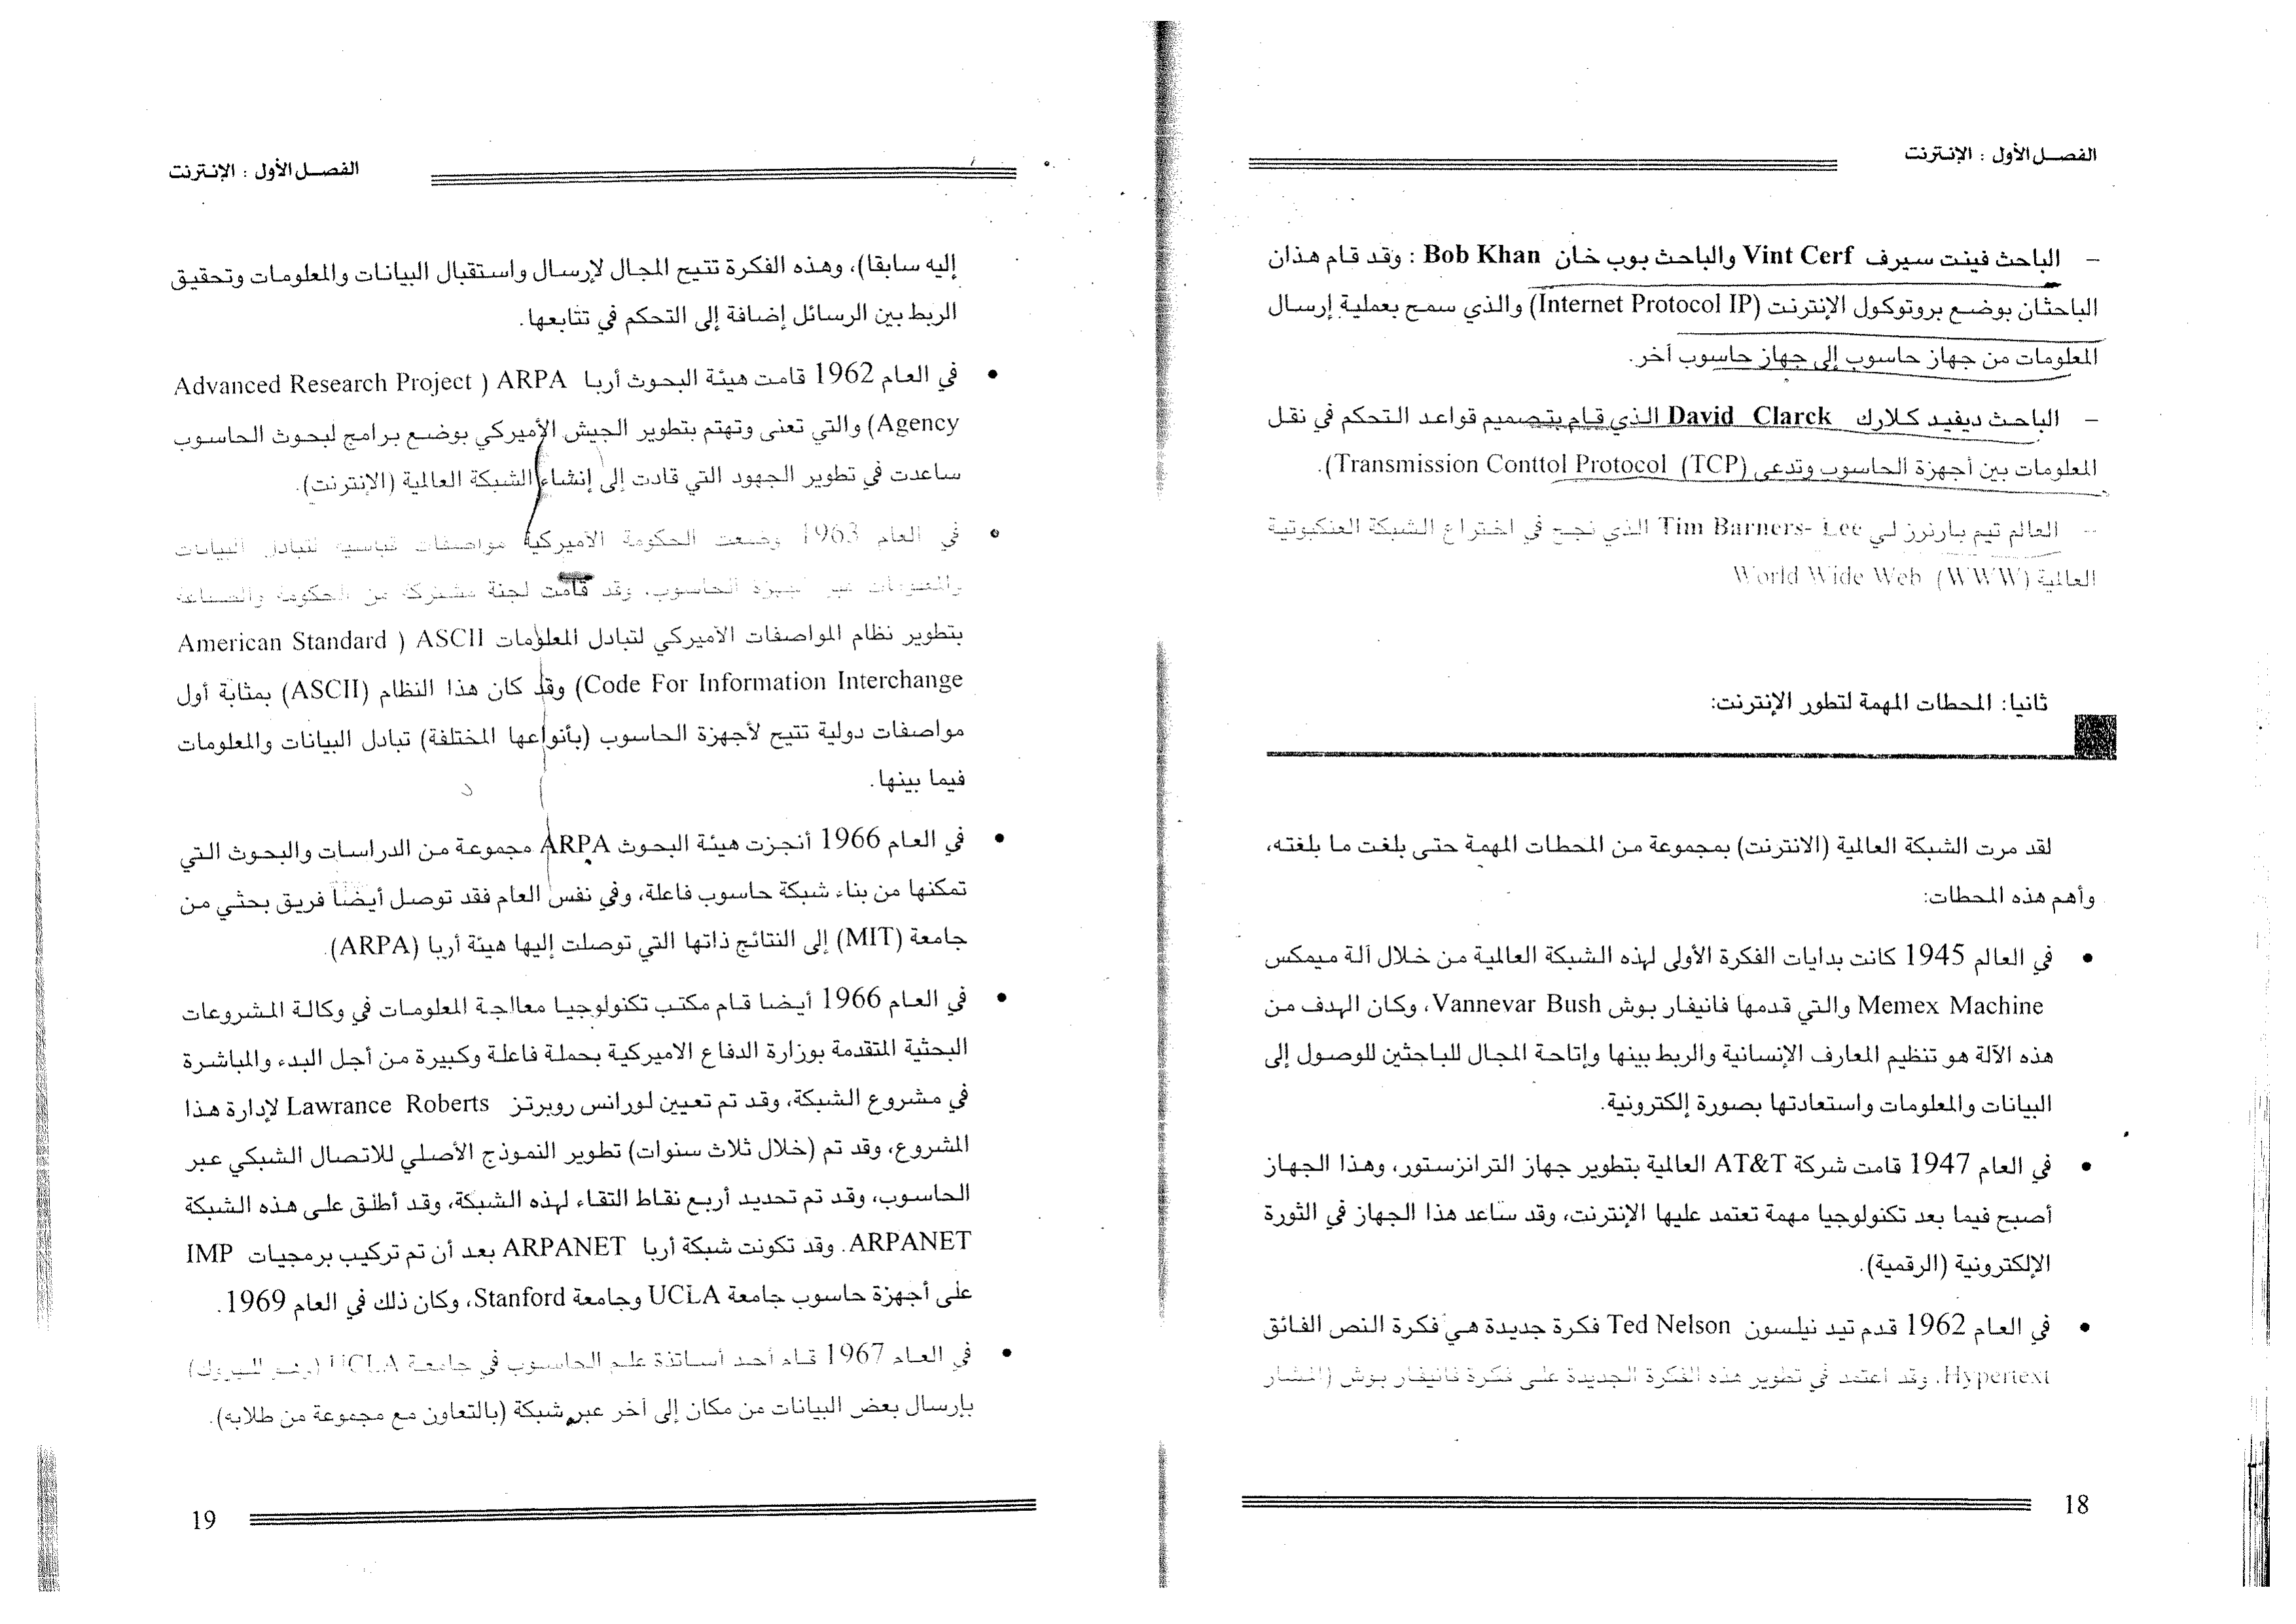 الفصل الأول : الإنترنت
– الباحث فينت سيرف Vint Cerf والباحث بوب خان Bob Khan : وقد قام هذان
الباحثان بوضع بروتوكول الإنترنت (Internet Protocol IP) والذي سمح بعملية إرسال
المعلومات من جهاز حاسوب إلى جهاز حاسوب آخر.
– الباحث ديفيد كلارك David Clarck الذي قام بتصميم قواعد التحكم في نقل
المعلومات بين أجهزة الحاسوب وتدعى (TCP) Transmission Conttol Protocol).
– العالم تيم بارنرز لي Tim Barners- Lee الذي نجح في اختراع الشبكة العنكبوتية
العالمية (WWW) World Wide Web
ثانيا: المحطات المهمة لتطور الإنترنت:
لقد مرت الشبكة العالمية (الانترنت) بمجموعة من المحطات المهمة حتى بلغت ما بلغته،
وأهم هذه المحطات:
• في العالم 1945 كانت بدايات الفكرة الأولى لهذه الشبكة العالمية من خلال آلة ميمكس
Memex Machine والتي قدمها فانيفار بوش Vannevar Bush، وكان الهدف من
هذه الآلة هو تنظيم المعارف الإنسانية والربط بينها وإتاحة المجال للباحثين للوصول إلى
البيانات والمعلومات واستعادتها بصورة إلكترونية.
• في العام 1947 قامت شركة AT&T العالمية بتطوير جهاز الترانزستور، وهذا الجهاز
أصبح فيما بعد تكنولوجيا مهمة تعتمد عليها الإنترنت، وقد ساعد هذا الجهاز في الثورة
الإلكترونية (الرقمية).
• في العام 1962 قدم تيد نيلسون Ted Nelson فكرة جديدة هي فكرة النص الفائق
Hypertext. وقد اعتمد في تطوير هذه الفكرة الجديدة على فكرة فانيفار بوش (المشار
18
الفصل الأول : الإنترنت
إليه سابقا)، وهذه الفكرة تتيح المجال لإرسال واستقبال البيانات والمعلومات وتحقيق
الربط بين الرسائل إضافة إلى التحكم في تتابعها.
• في العام 1962 قامت هيئة البحوث أربا ARPA ( Advanced Research Project
Agency) والتي تعنى وتهتم بتطوير الجيش الأميركي بوضع برامج لبحوث الحاسوب
ساعدت في تطوير الجهود التي قادت إلى إنشاء الشبكة العالمية (الإنترنت).
• في العام 1963 وضعت الحكومة الأميركية مواصفات قياسية لتبادل البيانات
والمعلومات عبر أجهزة الحاسوب، وقد قامت لجنة مشتركة من الحكومة والصناعة
بتطوير نظام المواصفات الأميركي لتبادل المعلومات ASCII ( American Standard
Code For Information Interchange) وقد كان هذا النظام (ASCII) بمثابة أول
مواصفات دولية تتيح لأجهزة الحاسوب (بأنواعها المختلفة) تبادل البيانات والمعلومات
فيما بينها.
• في العام 1966 أنجزت هيئة البحوث ARPA مجموعة من الدراسات والبحوث التي
تمكنها من بناء شبكة حاسوب فاعلة، وفي نفس العام فقد توصل أيضاً فريق بحثي من
جامعة (MIT) إلى النتائج ذاتها التي توصلت إليها هيئة أربا (ARPA).
• في العام 1966 أيضا قام مكتب تكنولوجيا معاالجة المعلومات في وكالة المشروعات
البحثية المتقدمة بوزارة الدفاع الاميركية بحملة فاعلة وكبيرة من أجل البدء والمباشرة
في مشروع الشبكة، وقد تم تعيين لورانس روبرتز Lawrance Roberts لإدارة هذا
المشروع، وقد تم (خلال ثلاث سنوات) تطوير النموذج الأصلي للاتصال الشبكي عبر
الحاسوب، وقد تم تحديد أربع نقاط التقاء لهذه الشبكة، وقد أطلق على هذه الشبكة
ARPANET. وقد تكونت شبكة أربا ARPANET بعد أن تم تركيب برمجيات IMP
على أجهزة حاسوب جامعة UCLA وجامعة Stanford، وكان ذلك في العام 1969.
• في العام 1967 قام أحد أساتذة علم الحاسوب في جامعة UCLA
بإرسال بعض البيانات من مكان إلى آخر عبر شبكة (بالتعاون مع مجموعة من طلابه).
19